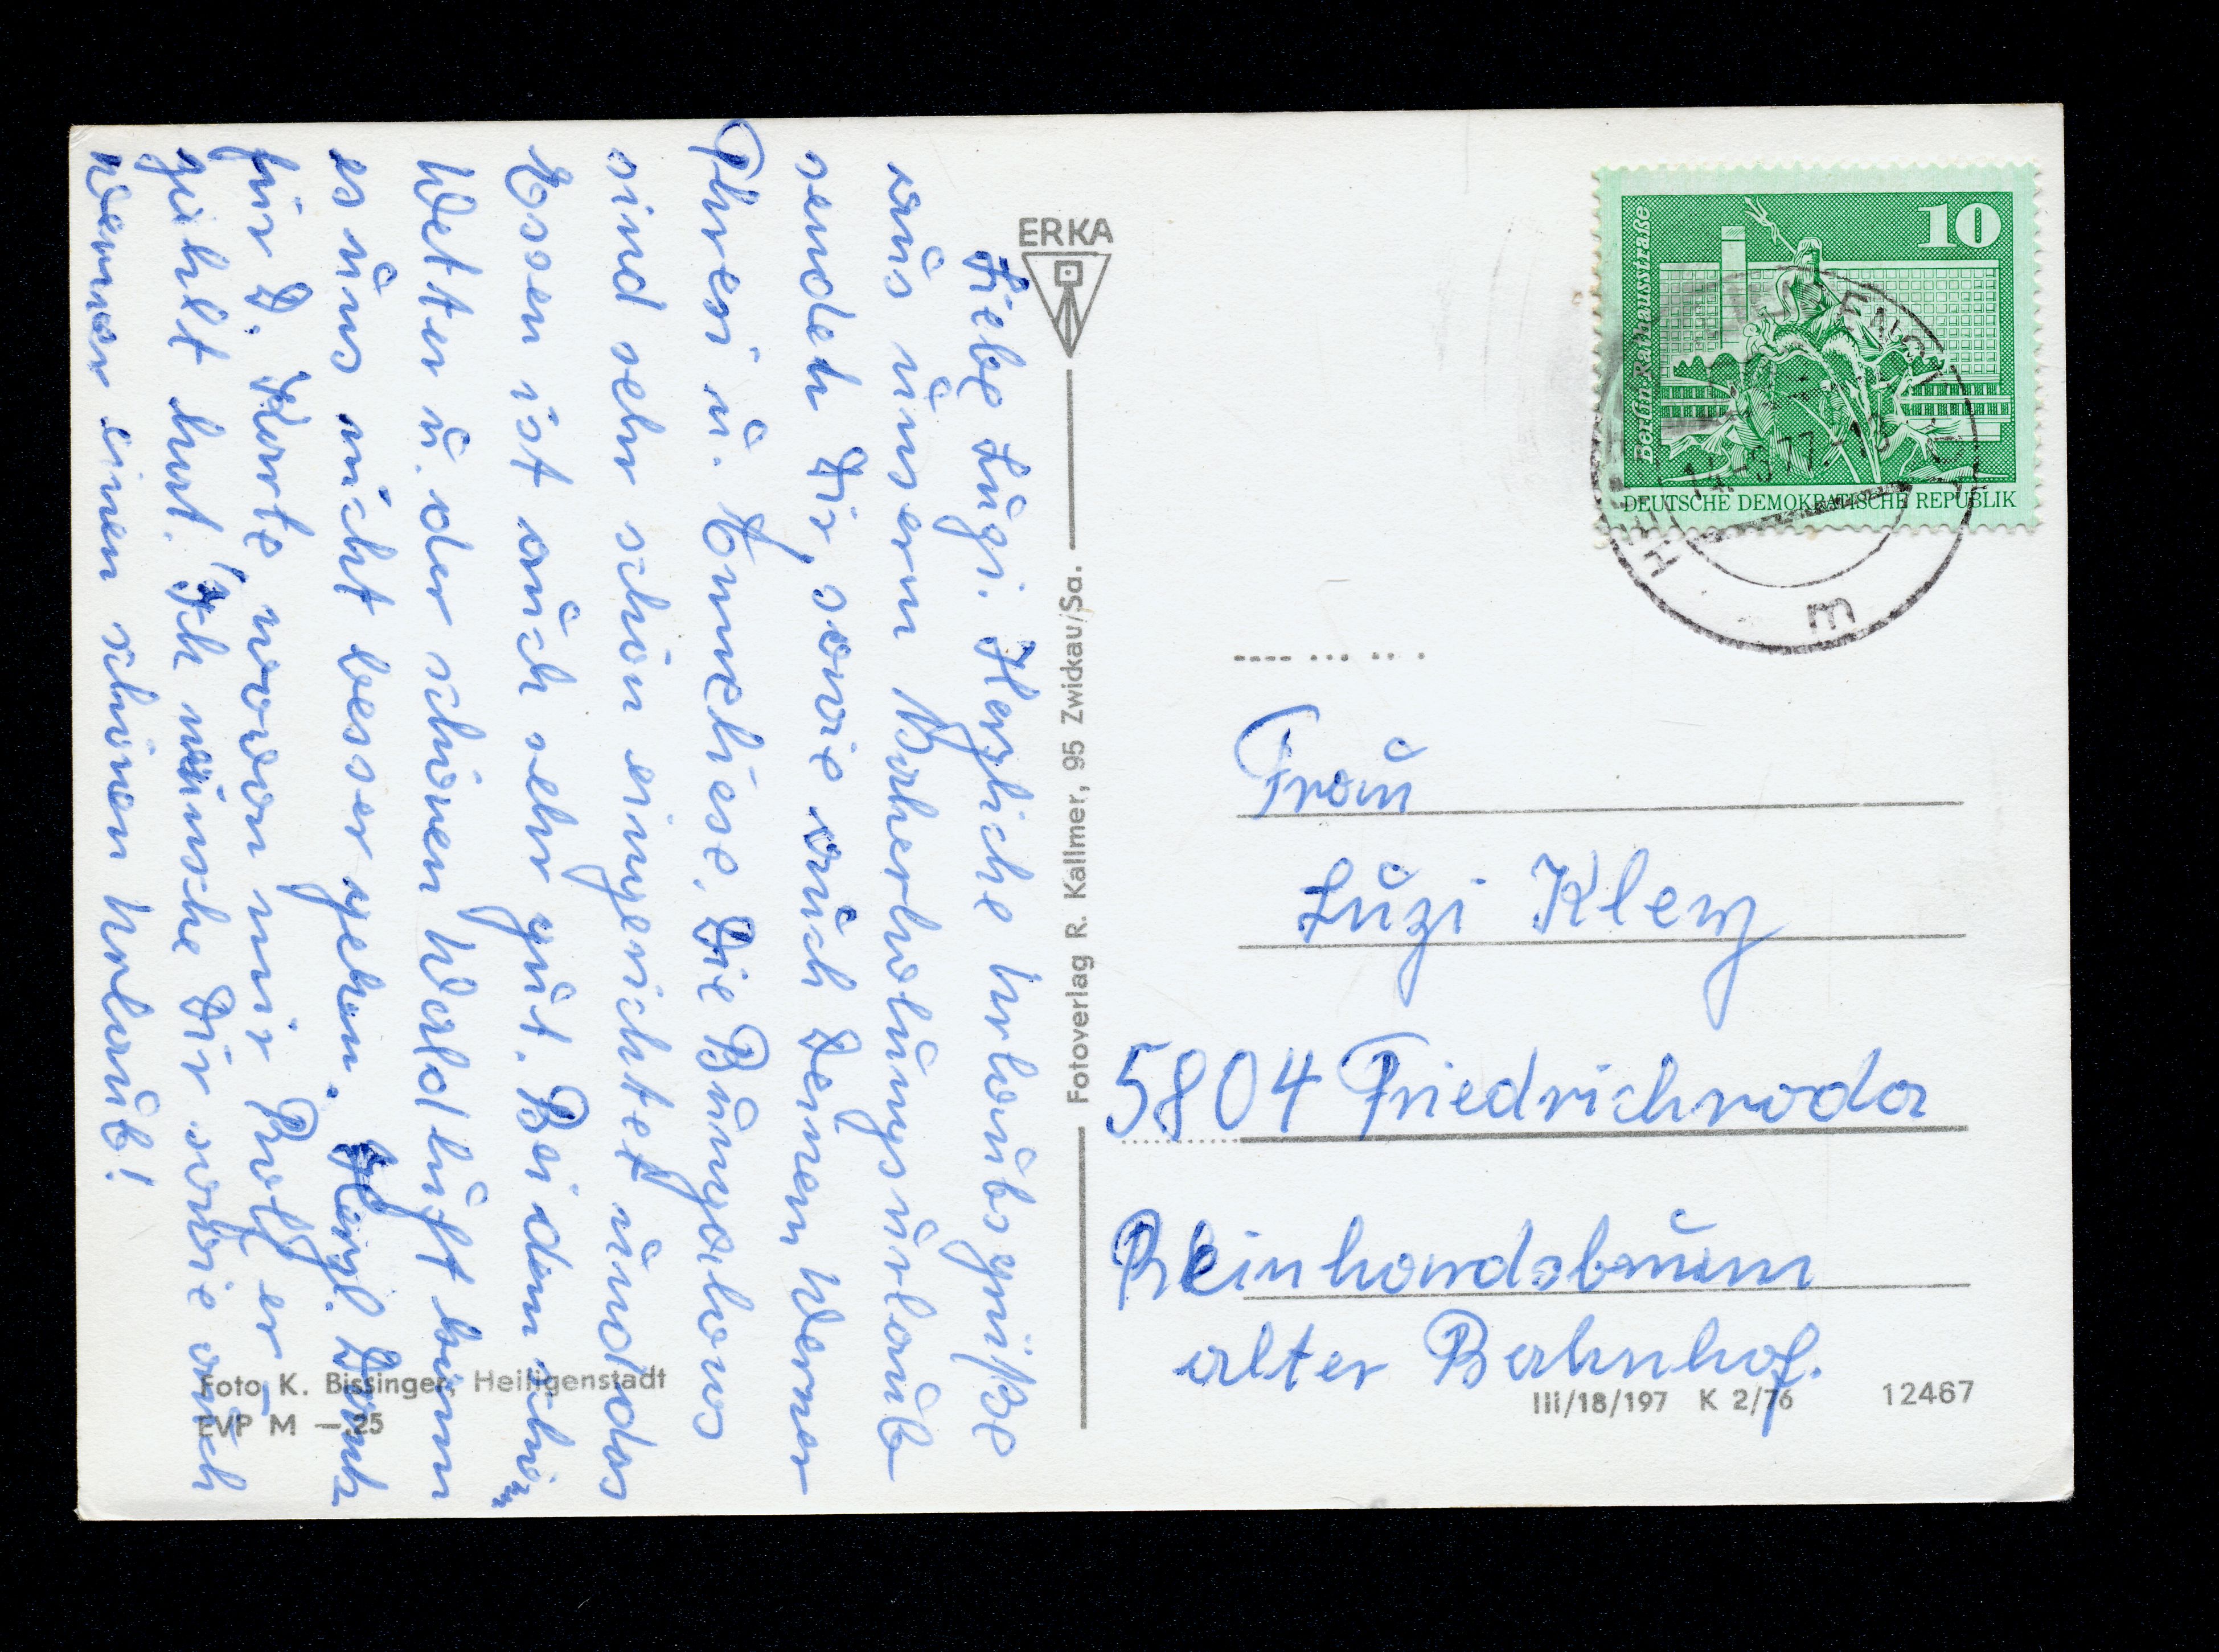 Liebe Luzi. Herzliche Urlaubsgrüße
aus unserm Naherholungsurlaub
senden Dir, sowie auch Deinen Werner
Thresi u. Anneliese. Die Bungalows
sind sehr schön eingerichtet und das
Essen ist auch sehr gut. Bei dem schö-
Wetter u. der schönen Waldluft kann
es uns nicht besser gehen. Herzl. Dank
für D. Karte, wovon mir Rolf er-
zählt hat. Ich wünsche Dir sowie auch
Werner einen schönen Urlaub!
ERKA
Fotoverlag R. Kallmer, 95 Zwickau/Sa.
Foto K. Bissinger, Heiligenstadt
EVP M —.25
10
Berlin-Rathausstraße
DEUTSCHE DEMOKRATISCHE REPUBLIK
77.-18
m
Frau
Luzi Klenz
5804 Friedrichroda
Reinhardsbrunn
alter Bahnhof.
III/18/197 K 2/76 12467